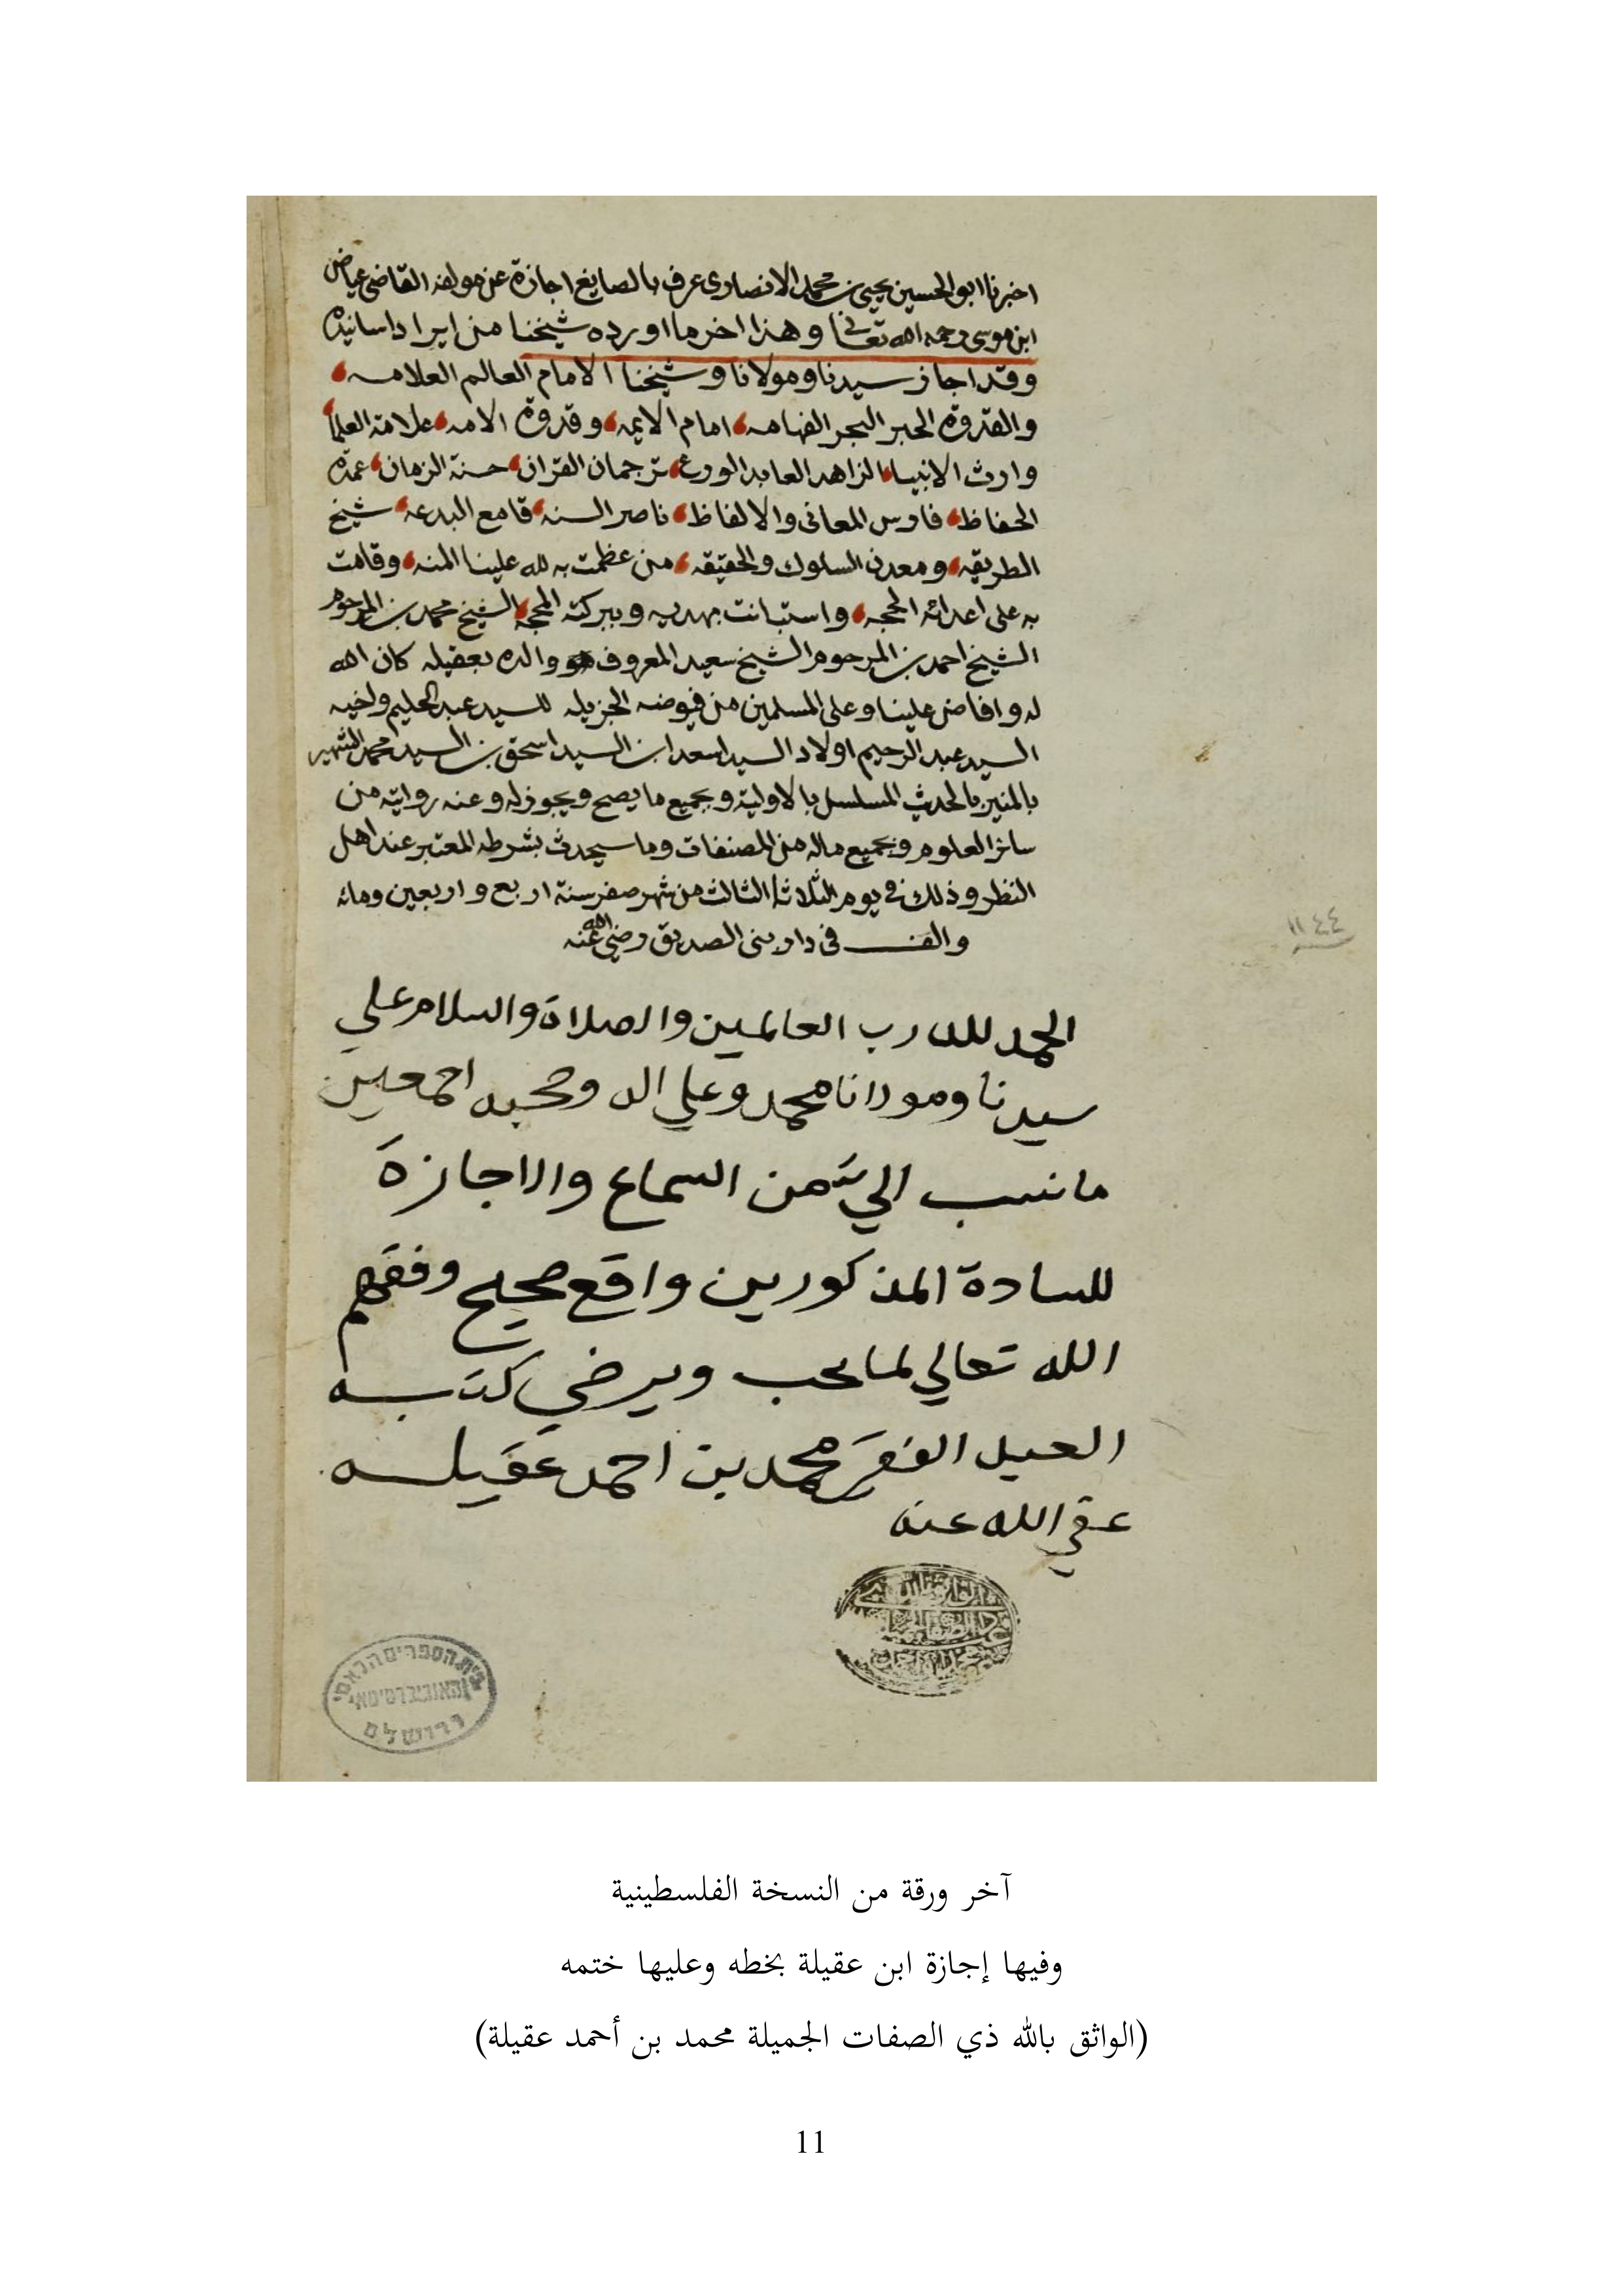 اخبرنا ابو الحسين يحيى بن محمد الانصارى عرف بالصايغ اجازة عن مولفه القاضى عياض
ابن موسى رحمه الله تعالى وهذا اخر ما اورده شيخنا من ايراد اسانيده
وقد اجاز سيدنا ومولانا وشيخنا الامام العالم العلامه
والقدوة الحبر البحر الفهامه امام الايمه وقدوة الامه علامة العلما
وارث الانبيا الزاهد العابد الورع ترجمان القران حسنة الزمان عمدة
الحفاظ فارس المعانى والالفاظ ناصر السنه قامع البدعه شيخ
الطريقه ومعدن السلوك والحقيقه من عظمت به لله علينا المنه وقامت
به على اعدائه الحجه واستبانت بهديه وببركته المحجه الشيخ محمد بن المرحوم
الشيخ احمد بن المرحوم الشيخ سعيد المعروف والده بعقيله كان الله
له وافاض علينا وعلى المسلمين من فيوضه الجزيله للسيد عبد الحليم واخيه
السيد عبد الرحيم اولاد السيد اسعد ابن السيد اسحق بن السيد محمد الشهير
بالمنير بالحديث المسلسل بالاولية وبجميع ما يصح ويجوز له وعنه روايته من
سائر العلوم وبجميع ماله من المصنفات وما سيحدث بشرطه المعتبر عند اهل
النظر وذلك فى يوم الثلاثا الثالث من شهر صفر سنة اربع واربعين ومائه
والف فى دار بنى الصديق رضي الله عنه
١١٤٤
الحمد لله رب العالمين والصلاة والسلام علي
سيدنا ومولانا محمد وعلي اله وصحبه اجمعين
ما نسب الي من السماع والاجازة
للسادة المذكورين واقع صحيح وفقهم
الله تعالي لما يحب ويرضي كتبه
العبد الفقير محمد بن احمد عقيله
عفي الله عنه
בית הספרים הלאומי
והאוניברסיטאי
ירושלם
آخر ورقة من النسخة الفلسطينية
وفيها إجازة ابن عقيلة بخطه وعليها ختمه
(الواثق بالله ذي الصفات الجميلة محمد بن أحمد عقيلة)
11